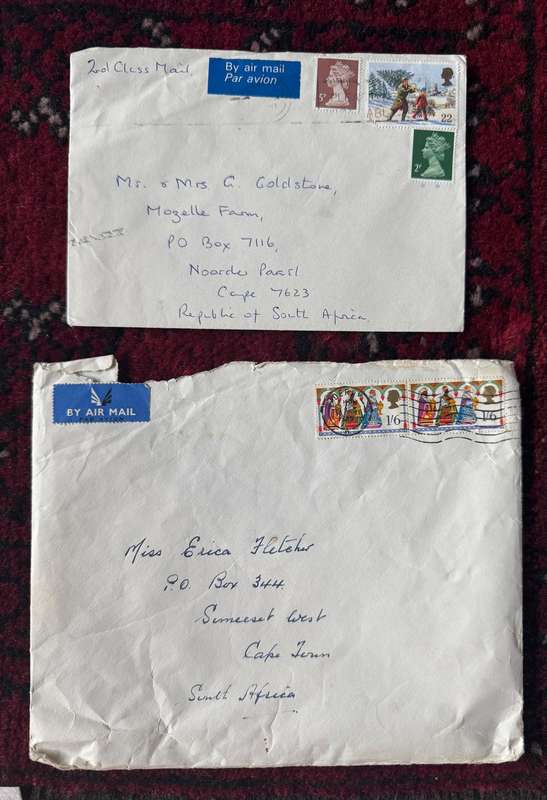 2nd Class Mail,
By air mail
Par avion
5P
22
2P
Mr. & Mrs G. Goldstone,
Mozelle Farm,
PO Box 7116,
Noorder Paarl
Cape 7623
Republic of South Africa
BY AIR MAIL
PAR AVION
1'6
1'6
Miss Erica Fletcher
P.O. Box 344
Somerset West
Cape Town
South Africa